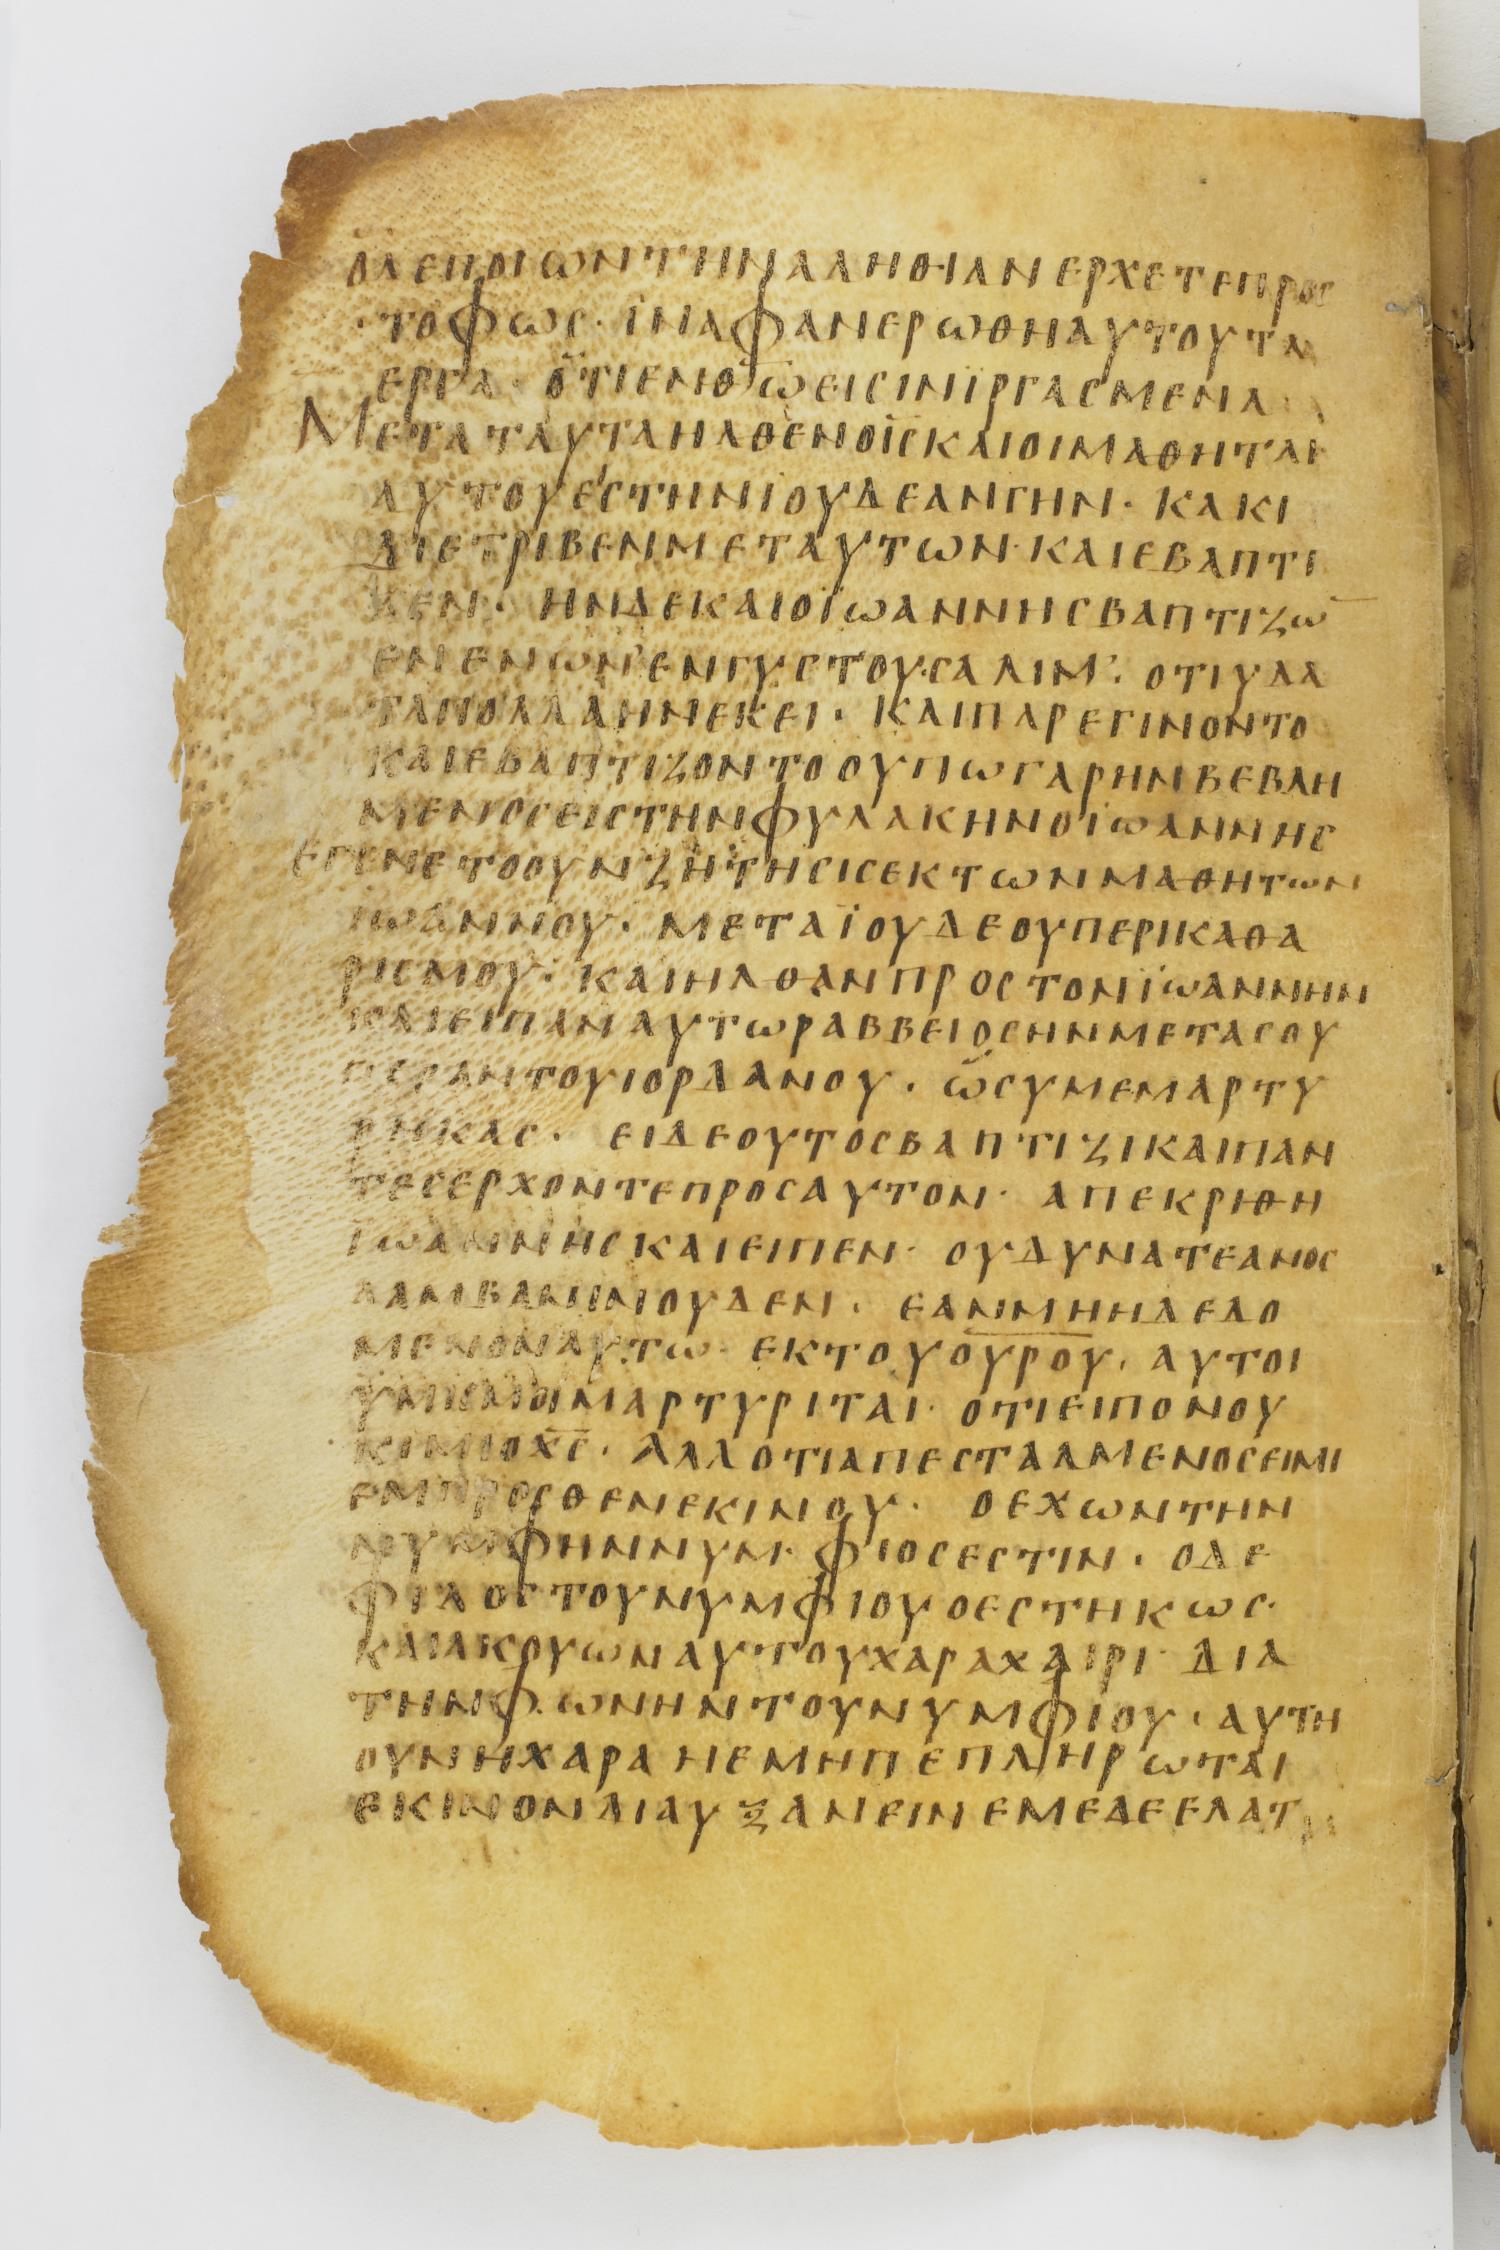 ΟΔΕΠΟΙΩΝΤΗΝΑΛΗΘΙΑΝΕΡΧΕΤΕΠΡΟΣ
·ΤΟΦΩϹ· ΪΝΑΦΑΝΕΡΩΘΗΑΥΤΟΥΤΑ
ΕΡΓΑ· ΟΤΙΕΝΘ̅Ω̅ΕΙϹΙΝΪΡΓΑϹΜΕΝΑ
ΜΕΤΑΤΑΥΤΑΗΛΘΕΝΟΙ̅Ϲ̅ΚΑΙΟΙΜΑΘΗΤΑΙ
ΑΥΤΟΥΕΙϹΤΗΝΪΟΥΔΕΑΝΓΗΝ· ΚΑΚΙ
ΔΙΕΤΡΙΒΕΝΜΕΤΑΥΤΩΝ·ΚΑΙΕΒΑΠΤΙ
ΖΕΝ· ΗΝΔΕΚΑΙΟΪΩΑΝΝΗϹΒΑΠΤΙΖΩ̅
ΕΝΕΝΩΝ ΕΝΓΥϹΤΟΥ·ϹΑΛΙΜ· ΟΤΙΥΔΑ
ΤΑΠΟΛΛΑΗΝΕΚΕΙ· ΚΑΙΠΑΡΕΓΙΝΟΝΤΟ
ΚΑΙΕΒΑΠΤΙΖΟΝΤΟΟΥΠΩΓΑΡΗΝΒΕΒΛΗ
ΜΕΝΟϹΕΙϹΤΗΝΦΥΛΑΚΗΝΟΪΩΑΝΝΗϹ
ΕΓΕΝΕΤΟΟΥΝΖΗΤΗϹΙϹΕΚΤΩΝΜΑΘΗΤΩΝ
ΪΩΑΝΝΟΥ· ΜΕΤΑΪΟΥΔΕΟΥΠΕΡΙΚΑΘΑ
ΡΙϹΜΟΥ· ΚΑΙΗΛΘΑΝΠΡΟϹΤΟΝΪΩΑΝΝΗΝ
ΚΑΙΕΙΠΑΝΑΥΤΩΡΑΒΒΕΙΟϹΗΝΜΕΤΑϹΟΥ
ΠΕΡΑΝΤΟΥΙΟΡΔΑΝΟΥ· ΩϹΥΜΕΜΑΡΤΥ
ΡΗΚΑϹ· ΕΙΔΕΟΥΤΟϹΒΑΠΤΙΖΙΚΑΙΠΑΝ
ΤΕϹΕΡΧΟΝΤΕΠΡΟϹΑΥΤΟΝ· ΑΠΕΚΡΙΘΗ
ΪΩΑΝΝΗϹΚΑΙΕΙΠΕΝ· ΟΥΔΥΝΑΤΕΑΝΟϹ
ΛΑΜΒΑΝΙΝΟΥΔΕΝ· ΕΑΝΜΗΗΔΕΔΟ
ΜΕΝΟΝΑΥΤΩ· ΕΚΤΟΥΟΥΡΟΥ· ΑΥΤΟΙ
ΥΜΙϹΜΟΙΜΑΡΤΥΡΙΤΑΙ· ΟΤΙΕΙΠΟΝΟΥ
ΚΙΜΙΟΧ̅Ϲ̅· ΑΛΛΟΤΙΑΠΕϹΤΑΛΜΕΝΟϹΕΙΜΙ
ΕΜΠΡΟϹΘΕΝΕΚΙΝΟΥ· ΟΕΧΩΝΤΗΝ
ΝΥΜΦΗΝΝΥΜ·ΦΙΟϹΕϹΤΙΝ· ΟΔΕ
ΦΙΛΟϹΤΟΥΝΥΜΦΙΟΥΟΕϹΤΗΚΩϹ·
ΚΑΙΑΚΟΥΩΝΑΥΤΟΥΧΑΡΑΧΑΙΡΙ· ΔΙΑ
ΤΗΝΦΩΝΗΝΤΟΥΝΥΜΦΙΟΥ· ΑΥΤΗ
ΟΥΝΗΧΑΡΑΗΕΜΗΠΕΠΛΗΡΩΤΑΙ
ΕΚΙΝΟΝΔΙΑΥΞΑΝΕΙΝΕΜΕΔΕΕΛΑΤ